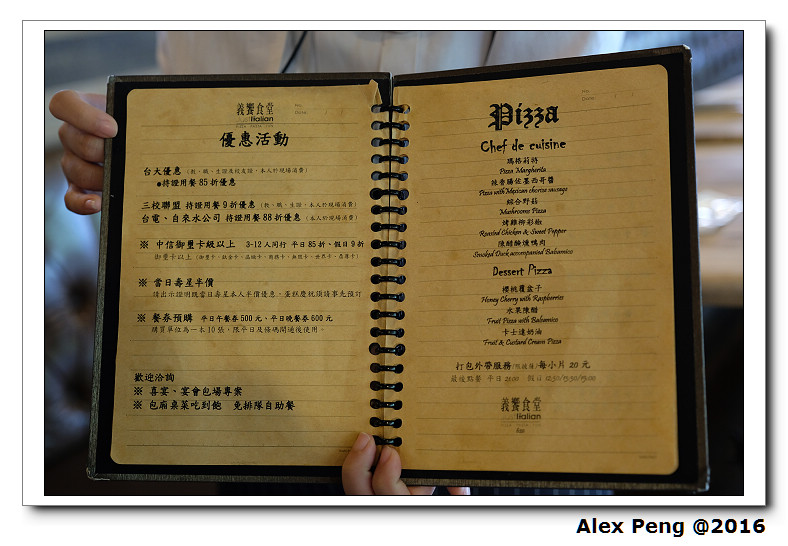 義饗食堂
Italian
No.
Date
優惠活動
台大優惠 (教、職、生證及校友證,本人於現場消費)
●持證用餐 85折優惠
三校聯盟 持證用餐9折優惠 (教、職、生證,本人於現場消費)
台電、自來水公司 持證用餐88折優惠 (本人於現場消費)
※ 中信御璽卡級以上 3-12人同行 平日85折、假日9折
※ 當日壽星半價
請出示證明既當日壽星本人半價優惠,蛋糕慶祝煩請事先預訂
※ 餐券預購 平日午餐券500元、平日晚餐券600元
購買單位為一本10張,限平日及條碼開通後使用。
歡迎洽詢
※ 喜宴、宴會包場專案
※ 包廂桌菜吃到飽 免排隊自助餐
Pizza
Chef de cuisine
瑪格莉特
Pizza Margherita
辣香腸佐墨西哥醬
Pizza with Mexican chorizo sausage
綜合野菇
Mushrooms Pizza
烤雞柳彩椒
Roasted Chicken & Sweet Pepper
陳醋醃燻鴨肉
Smoked Duck accompanied Balsamico
Dessert Pizza
櫻桃覆盆子
Honey Cherry with Raspberries
水果陳醋
Fruit Pizza with Balsamico
卡士達奶油
Fruit & Custard Cream Pizza
打包外帶服務(限披薩)每小片 20元
最後點餐 平日 21:00 假日
義饗食堂
Italian
Alex Peng @2016